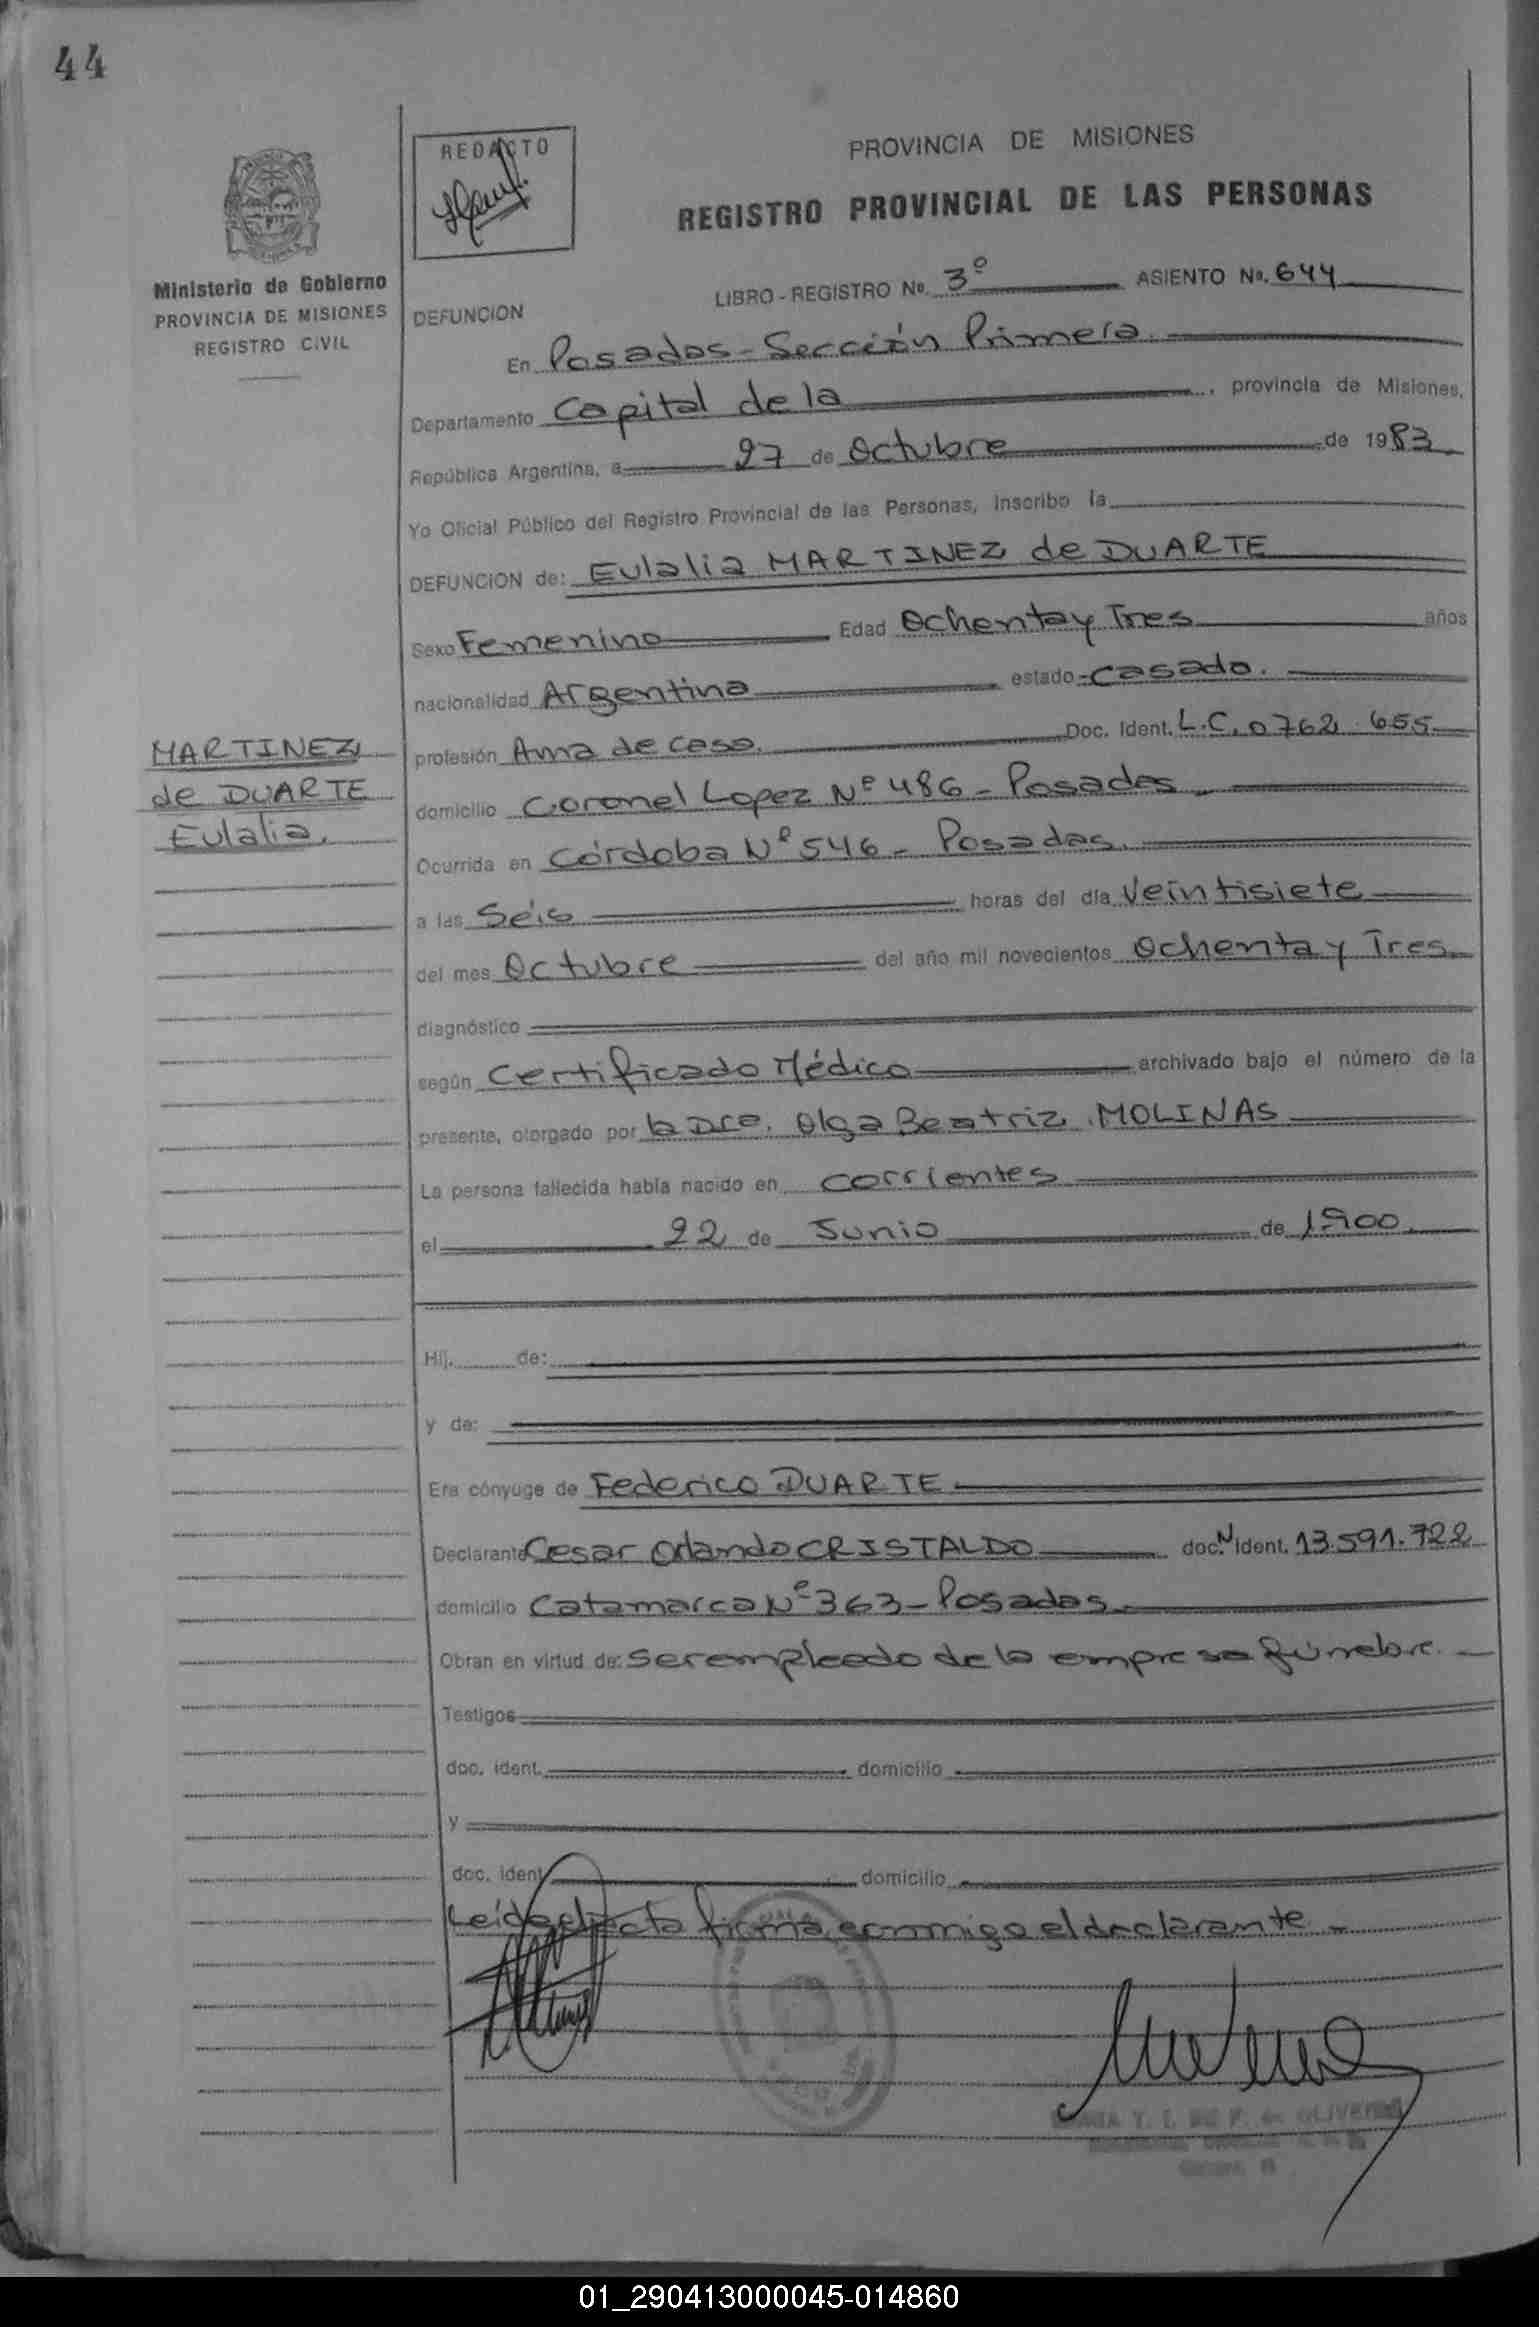 44
REDACTO
PROVINCIA DE MISIONES
REGISTRO PROVINCIAL DE LAS PERSONAS
Ministerio de Gobierno
PROVINCIA DE MISIONES
REGISTRO CIVIL
LIBRO - REGISTRO No. 3º ASIENTO No. 644
DEFUNCION
En Posadas - Sección Primera.
Departamento Capital de la , provincia de Misiones,
República Argentina, a 27 de Octubre de 1983.
Yo Oficial Público del Registro Provincial de las Personas, inscribo la
DEFUNCION de: Eulalia MARTINEZ de DUARTE
Sexo Femenino Edad Ochenta y Tres años
nacionalidad Argentina estado casado.
profesión Ama de casa. Doc. Ident. L.C. 0762.655
domicilio Coronel Lopez Nº 486 - Posadas.
MARTINEZ
de DUARTE
Eulalia.
Ocurrida en Córdoba Nº 546 - Posadas.
a las Seis horas del día Veintisiete
del mes Octubre del año mil novecientos Ochenta y Tres
diagnóstico
según Certificado Médico archivado bajo el número de la
presente, otorgado por la Dra. Olga Beatriz MOLINAS
La persona fallecida había nacido en corrientes
el 22 de Junio de 1900.
Hij. de:
y de:
Era cónyuge de Federico DUARTE
Declarante Cesar Orlando CRISTALDO doc. N ident. 13.591.722
domicilio Catamarca Nº 363 - Posadas
Obran en virtud de: ser empleado de la empresa fúnebre.
Testigos
doc. ident. domicilio
y
doc. ident. domicilio
Leído el acta firma conmigo el declarante.
01_290413000045-014860